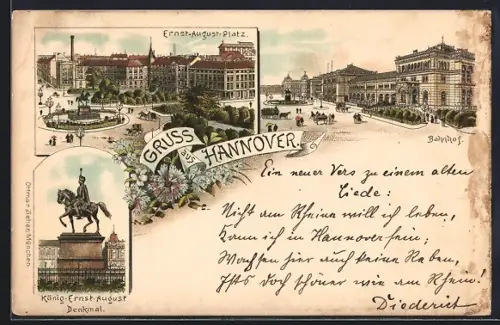 Ernst-August-Platz.
Bahnhof.
GRUSS
aus
HANNOVER.
König-Ernst-August
Denkmal.
Ottmar Zieher, München.
Ein neuer Vers zu einem alten
Liede:
Nicht am Rheine will ich leben,
Kann ich in Hannover sein;
Wachsen hier auch keine Reben,
Ists doch schöner wie am Rhein!
Diederich